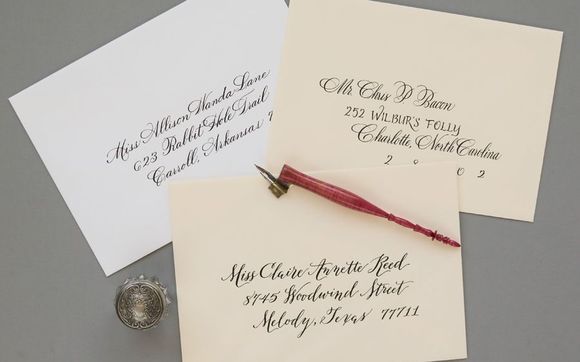 Miss Allison Wanda Lane
623 Rabbit Hole Trail
Carroll, Arkansas 7
Mr Chris P Bacon
252 WILBUR'S FOLLY
Charlotte, North Carolina
2 8 2 0 2
Miss Claire Annette Reed
8745 Woodwind Street
Melody, Texas 77711